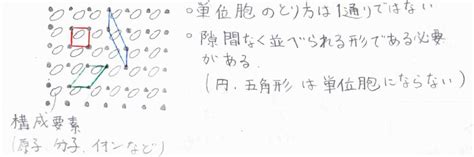 ○単位胞のとり方は1通りではない
○隙間なく並べられる形である必要
がある.
(円.五角形は単位胞にならない)
構成要素
(原子 分子、イオンなど)